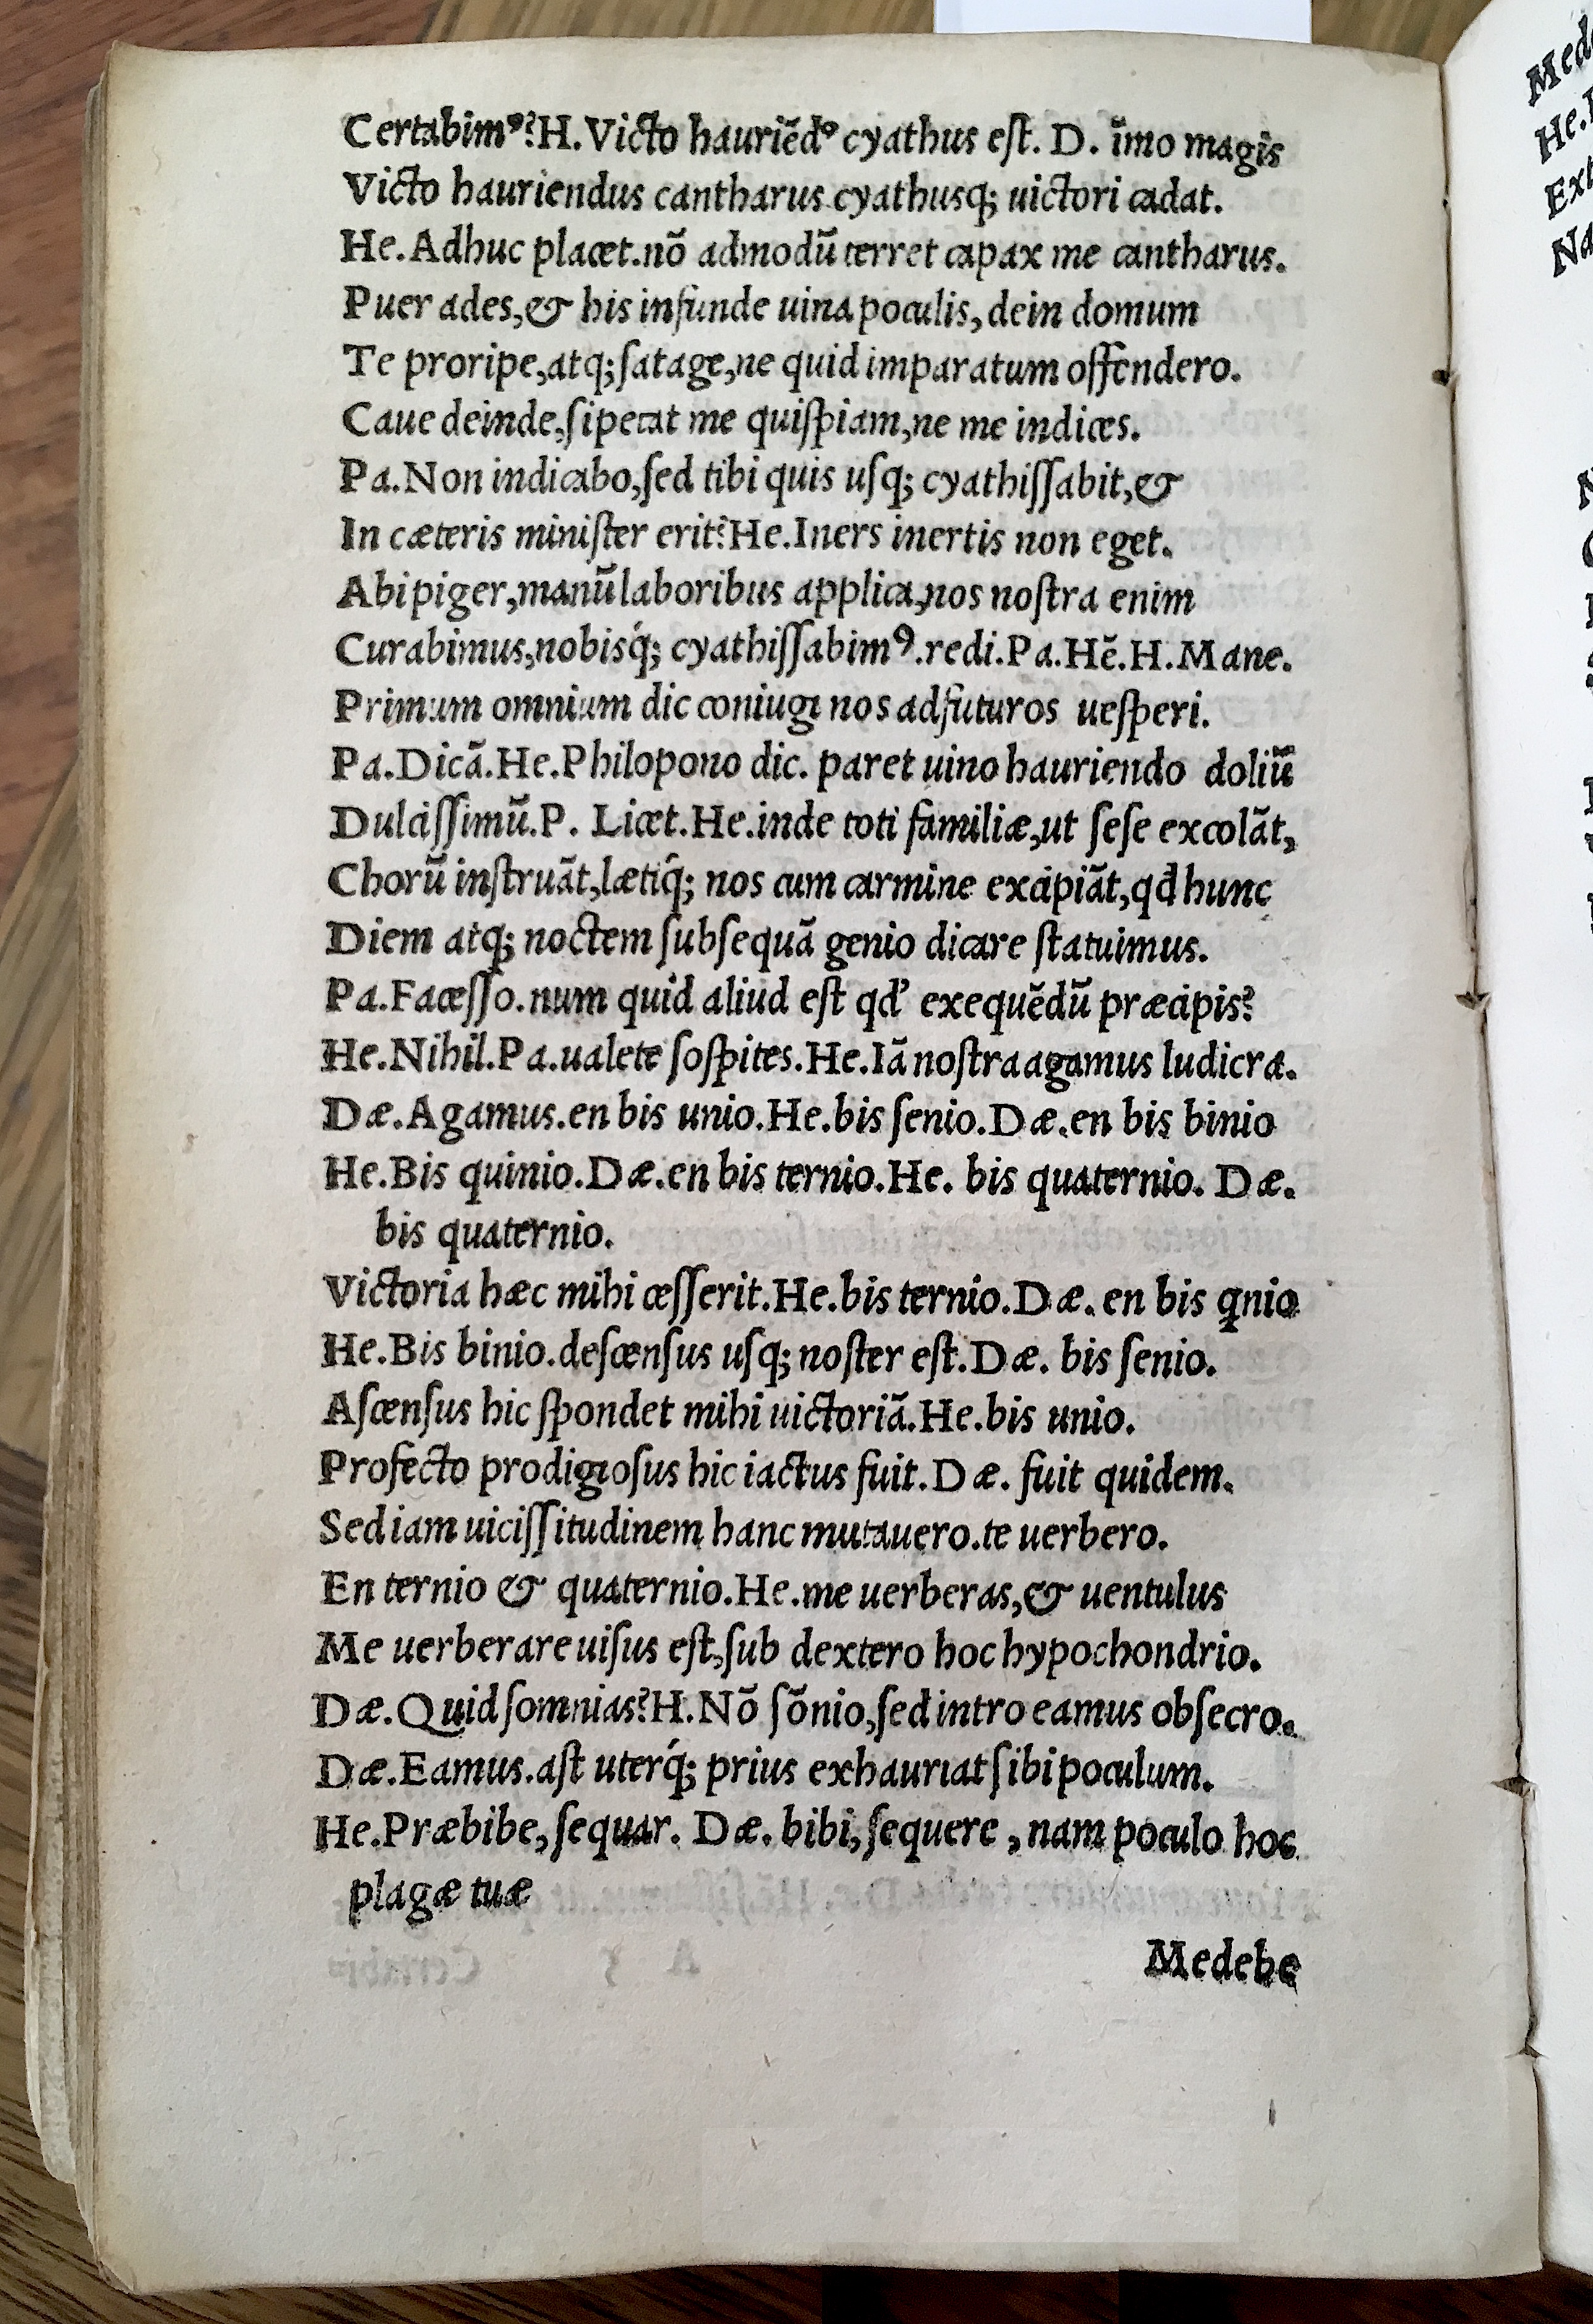 Certabimꝰ?H.Victo hauriẽdꝰ cyathus eſt. D. ĩmo magis
Victo hauriendus cantharus cyathusq; uictori cadat.
He.Adhuc placet.nõ admodũ terret capax me cantharus.
Puer ades,& his infunde uina poculis, dein domum
Te proripe,atq;ſatage,ne quid imparatum offendero.
Caue deinde,ſi petat me quiſpiam,ne me indices.
Pa.Non indicabo,ſed tibi quis uſq; cyathiſſabit,&
In cæteris miniſter erit?He.Iners inertis non eget.
Abi piger,manũ laboribus applica,nos noſtra enim
Curabimus,nobisq́; cyathiſſabimꝰ.redi.Pa.Hẽ.H.Mane.
Primum omnium dic coniugi nos adfuturos ueſperi.
Pa.Dicã.He.Philopono dic. paret uino hauriendo doliũ
Dulciſſimũ.P. Licet.He.inde toti familiæ,ut ſeſe excolãt,
Chorũ inſtruãt,lætiq́; nos cum carmine excipiãt,qđ hunc
Diem atq; noctem ſubſequã genio dicare ſtatuimus.
Pa.Faceſſo.num quid aliud eſt qđ exequẽdũ præcipis?
He.Nihil.Pa.ualete ſoſpites.He.Iã noſtra agamus ludicra.
Dæ.Agamus.en bis unio.He.bis ſenio.Dæ.en bis binio
He.Bis quinio.Dæ.en bis ternio.He. bis quaternio. Dæ.
bis quaternio.
Victoria hæc mihi ceſſerit.He.bis ternio.Dæ. en bis qnio
He.Bis binio.deſcenſus uſq; noſter eſt.Dæ. bis ſenio.
Aſcenſus hic ſpondet mihi uictoriã.He.bis unio.
Profecto prodigioſus hic iactus fuit.Dæ. fuit quidem.
Sed iam uiciſſitudinem hanc mutauero.te uerbero.
En ternio & quaternio.He.me uerberas,& uentulus
Me uerberare uiſus eſt,ſub dextero hoc hypochondrio.
Dæ.Quid ſomnias?H.Nõ ſõnio,ſed intro eamus obſecro.
Dæ.Eamus.aſt uterq́; prius exhauriat ſibi poculum.
He.Præbibe, ſequar. Dæ. bibi,ſequere , nam poculo hoc
plagæ tuæ
Medebe